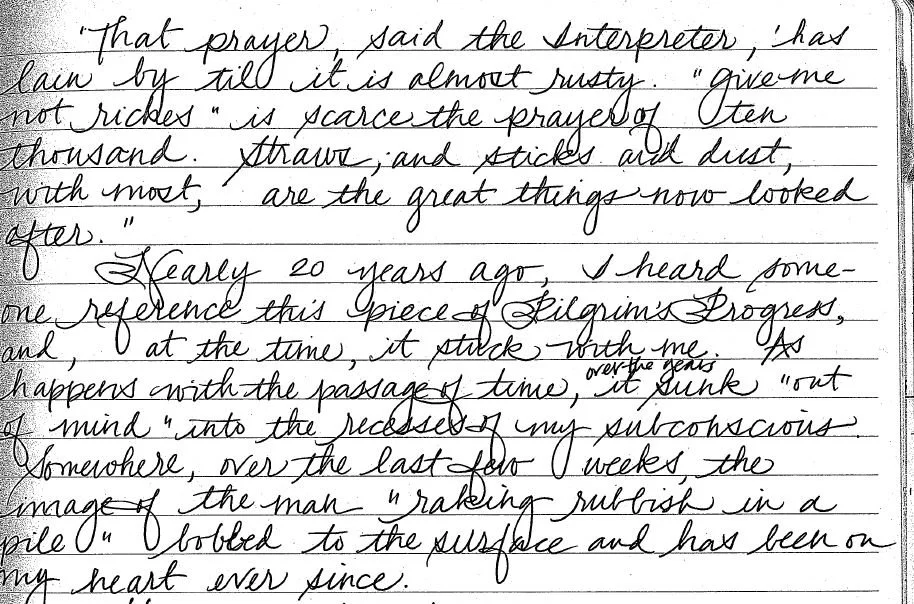 'That prayer, said the Interpreter, 'has
lain by till it is almost rusty. "give me
not riches" is scarce the prayer of ten
thousand. Straws, and sticks and dust,
with most, are the great things now looked
after."
Nearly 20 years ago, I heard some-
one reference this piece of Pilgrim's Progress,
and, at the time, it stuck with me. As
over the years
happens with the passage of time, it sunk "out
of mind" into the recesses of my subconscious.
Somewhere, over the last few weeks, the
image of the man "raking rubbish in a
pile" bobbed to the surface and has been on
my heart ever since.